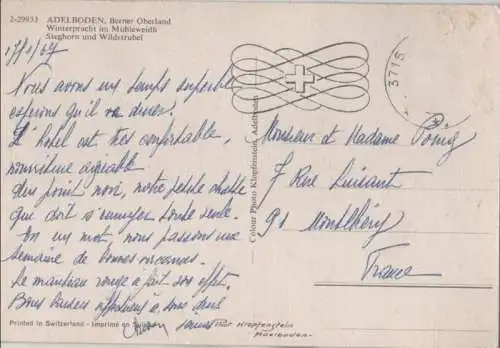 2-29933 ADELBODEN, Berner Oberland
Winterpracht im Mühleweidli
Steghorn und Wildstrubel
Nous avons un temps superbe
espérons qu'il va durer!
L'hôtel est très confortable,
nourriture agréable
point noir, notre petite chatte
que doit s'ennuyer toute seule.
En un mot, nous passons une
semaine de bonnes vacances.
Le manteau rouge a fait son effet.
Bons baisers affectueux à vous deux
Colour Photo Klopfenstein, Adelboden
3715
Monsieur et Madame
7 Rue
91 Montlhéry
France
Printed in Switzerland - Imprimé en Suisse
Klopfenstein
Adelboden